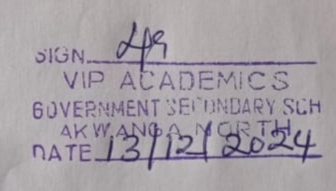 SIGN
VIP ACADEMICS
GOVERNMENT SECONDARY SCH
AKWANGA NORTH
DATE 13/12/2024